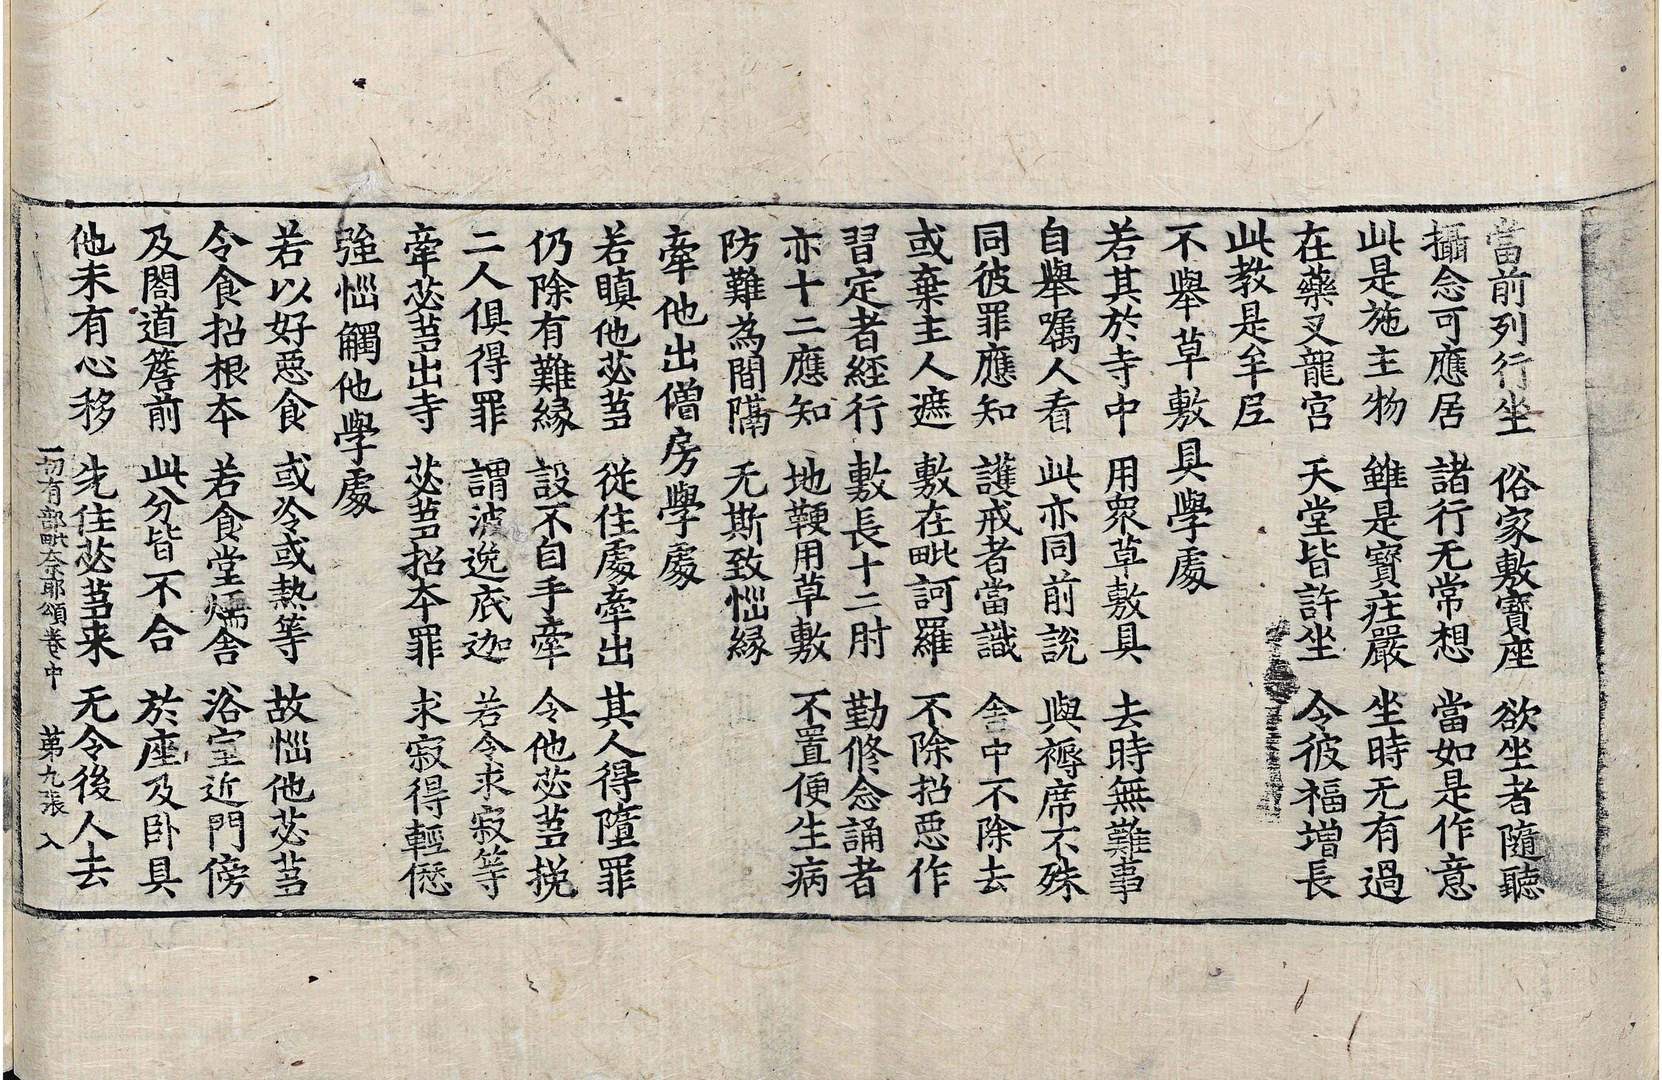 當前列行坐 俗家敷寶座 欲坐者隨聽
攝念可應居 諸行无常想 當如是作意
此是施主物 雖是寶庄嚴 坐時无有過
在藥叉龍宮 天堂皆許坐 令彼福增長
此教是牟尼
不舉草敷具學處
若其於寺中 用衆草敷具 去時無難事
自舉囑人看 此亦同前說 與褥席不殊
同彼罪應知 護戒者當識 舍中不除去
或棄主人遮 敷在毗訶羅 不除招惡作
習定者經行 敷長十二肘 勤修念誦者
亦十二應知 地鞕用草敷 不置便生病
防難為間隔 无斯致惱緣
牽他出僧房學處
若瞋他苾芻 從住處牽出 其人得墮罪
仍除有難緣 設不自手牽 令他苾芻挽
二人俱得罪 謂波逸底迦 若令求寂等
牽苾芻出寺 苾芻招本罪 求寂得輕愆
強惱觸他學處
若以好惡食 或冷或熱等 故惱他苾芻
令食招根本 若食堂煗舍 浴室近門傍
及閣道簷前 此分皆不合 於座及卧具
他未有心移 先住苾芻来 无令後人去
一切有部毗奈耶頌卷中 第九張 入